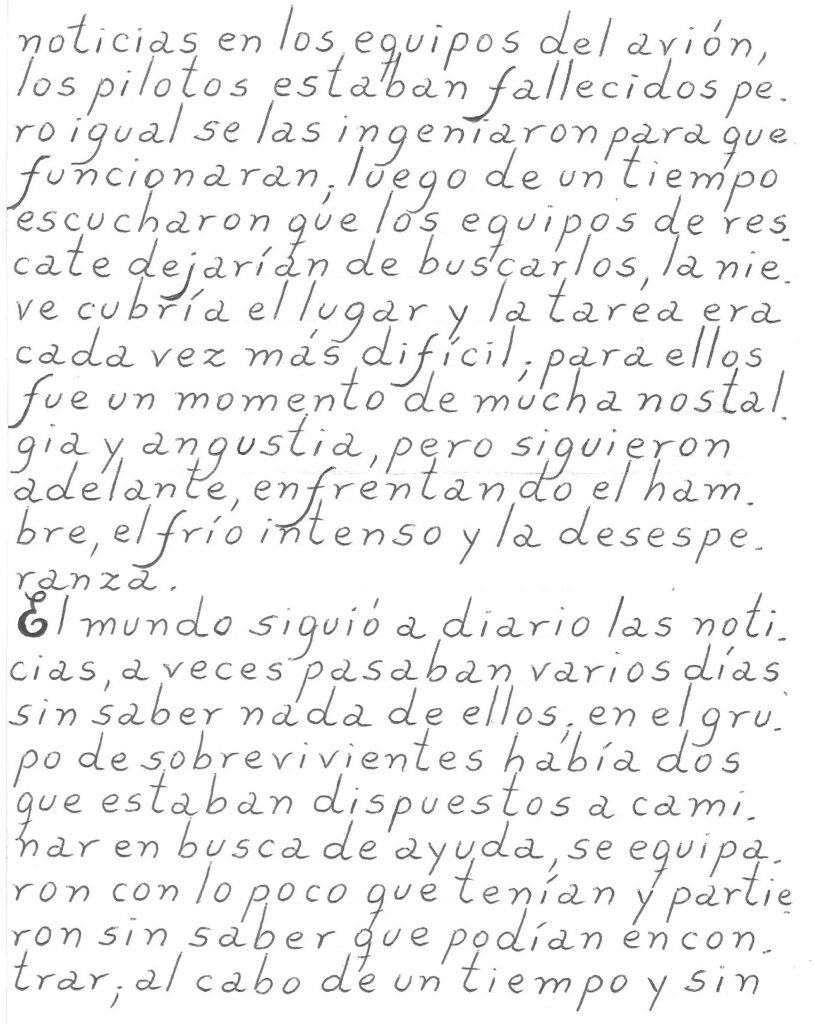 noticias en los equipos del avión,
los pilotos estaban fallecidos pe.
ro igual se las ingeniaron para que
funcionaran; luego de un tiempo
escucharon que los equipos de res.
cate dejarían de buscarlos, la nie.
ve cubría el lugar y la tarea era
cada vez más difícil; para ellos
fue un momento de mucha nostal.
gia y angustia, pero siguieron
adelante, enfrentando el ham.
bre, el frío intenso y la desespe.
ranza.
El mundo siguió a diario las noti.
cias, a veces pasaban varios días
sin saber nada de ellos; en el gru.
po de sobrevivientes había dos
que estaban dispuestos a cami.
nar en busca de ayuda, se equipa.
ron con lo poco que tenían y partie
ron sin saber que podían encon.
trar; al cabo de un tiempo y sin